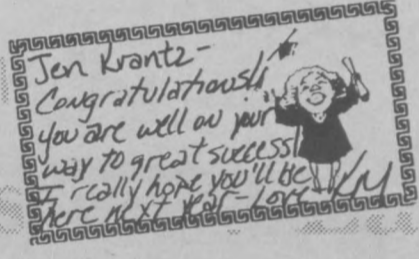 Jen Krantz-
Congratulations!!
you are well on your
way to great success
I really hope you'll be
here next year - Love